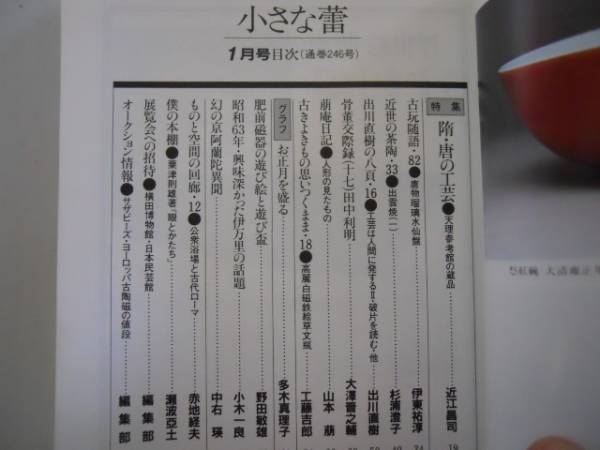 小さな蕾
1月号目次(通巻246号)
特集
隋・唐の工芸●天理参考館の蔵品 近江昌司 19
古玩随語・82●唐物瑠璃水仙盤 伊東祐淳
近世の茶陶・33●出雲焼(一) 杉浦澄子
出川直樹の八頁・16●工芸は人間に発するⅡ・破片を読む・他 出川直樹
骨董交際録(十七)田中利明 大澤晋之輔
萠庵日記●人形の見たもの 山本萠
古きよきもの思いつくまま・18●高麗白磁鉄絵草文瓶 工藤吉郎
グラフ
お正月を盛る 多木真理子
肥前磁器の遊び絵と遊び盃 野田敏雄
昭和63年・興味深かった伊万里の話題 小木一良
幻の京阿蘭陀異聞 中右瑛
ものと空間の回廊・12●公衆浴場と古代ローマ 赤地経夫
僕の本棚●粟津則雄著「眼とかたち」 瀬波亞土
展覧会への招待●横田博物館・日本民芸館 編集部
オークション情報●サザビーズ・ヨーロッパ古陶磁の値段 編集部